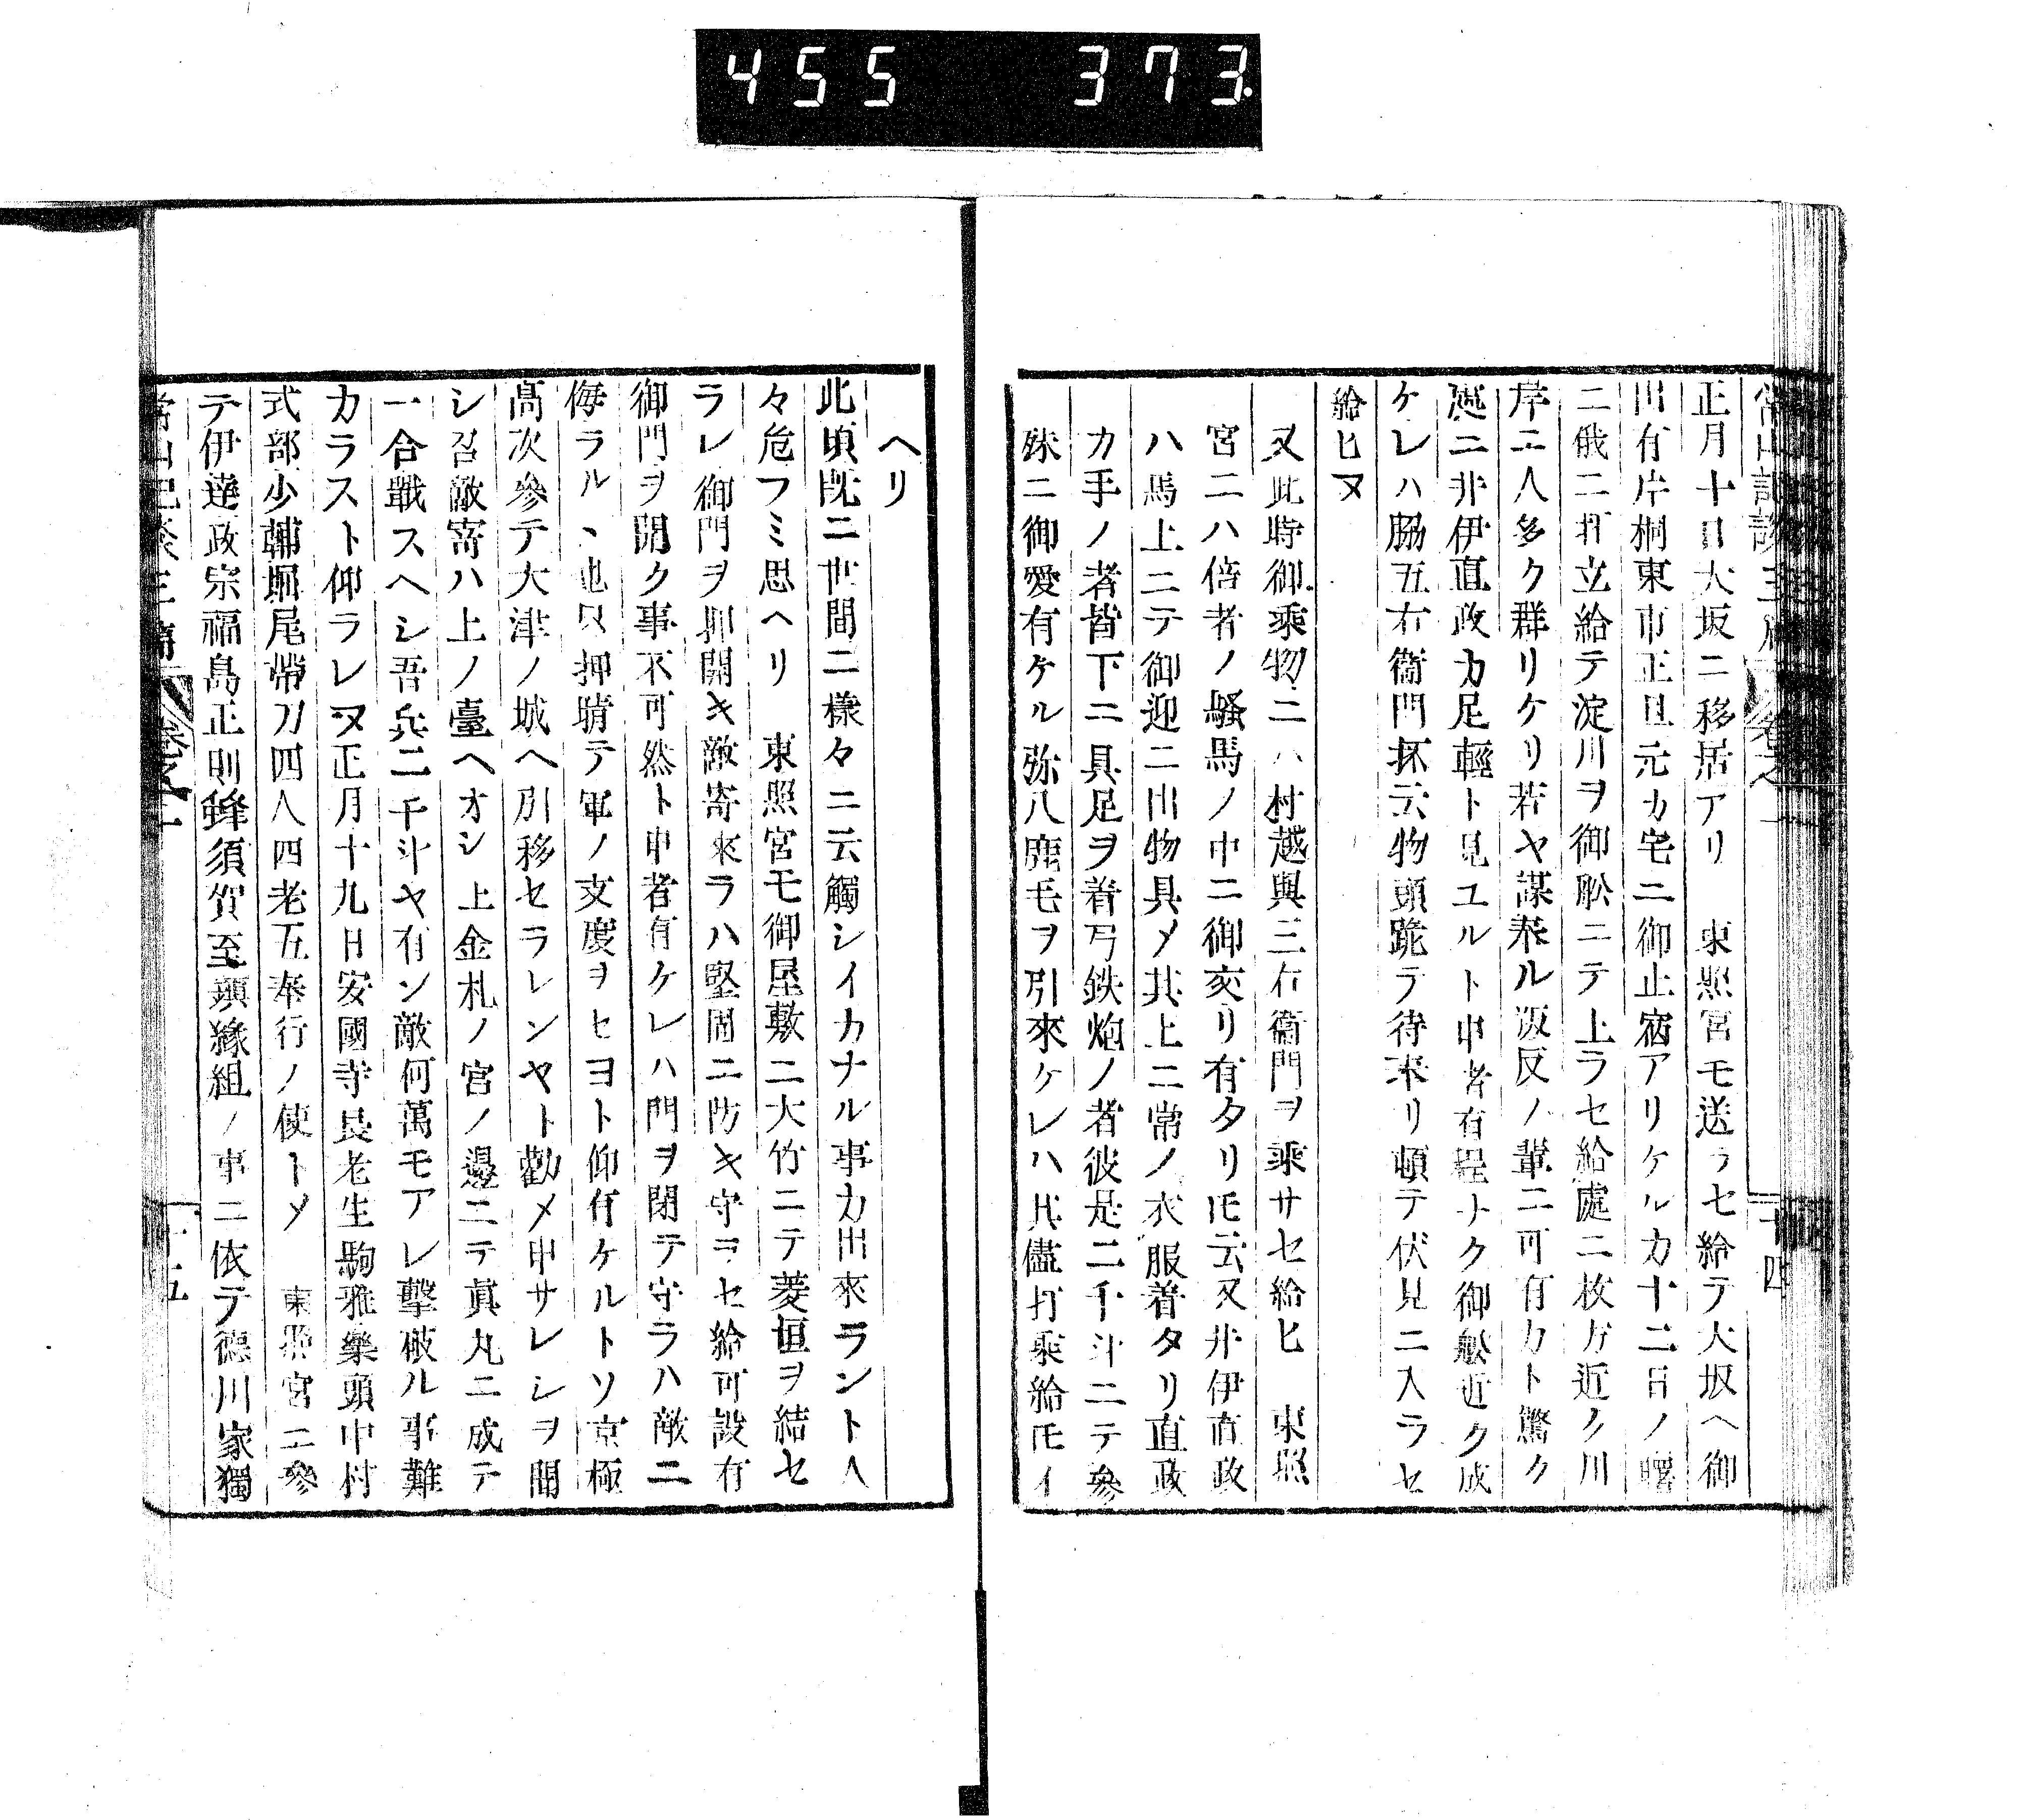 455 373
正月十日大坂ニ移居アリ　東照宮モ送ラセ給テ大坂ヘ御
出有片桐東市正且元カ宅ニ御止宿アリケルカ十二日ノ曙
ニ俄ニ打立給テ淀川ヲ御舩ニテ上ラセ給處ニ枚方近ク川
岸ニ人多ク群リケリ若ヤ謀桒ル叛反ノ輩ニ可有カト驚ク
處ニ井伊直政カ足輕ト見ユルト申者有程ナク御舩近ク成
ケレハ脇五右衞門抔云物頭跪テ待来リ頓テ伏見ニ入ラセ
給ヒヌ
又此時御乘物ニハ村越與三右衞門ヲ乘サセ給ヒ　東照
宮ニハ倍者ノ騷馬ノ中ニ御交リ有タリ𪜈云又井伊直政
ハ馬上ニテ御迎ニ出物具〆其上ニ常ノ衣服着タリ直政
カ手ノ者皆下ニ具足ヲ着弓鉄炮ノ者彼是二千斗ニテ參
殊ニ御愛有ケル弥八鹿毛ヲ引來ケレハ其儘打乘給𪜈イ
ヘリ
此頃既ニ世間ニ樣々ニ云觸シイカナル事カ出來ラント人
々危フミ思ヘリ　東照宮モ御屋敷ニ大竹ニテ菱垣ヲ結セ
ラレ御門ヲ押開キ敵寄來ラハ堅固ニ防キ守ラセ給可設有
御門ヲ開ク事不可然ト申者有ケレハ門ヲ閉テ守ラハ敵ニ
侮ラルヽ也只押晴テ軍ノ支度ヲセヨト仰有ケルトソ京極
髙次參テ大津ノ城ヘ引移セラレンヤト勸メ申サレシヲ聞
シ召敵寄ハ上ノ臺ヘオシ上金札ノ宮ノ邊ニテ眞丸ニ成テ
一合戰スヘシ吾兵二千斗ヤ有ン敵何萬モアレ擊破ル事難
カラスト仰ラレヌ正月十九日安國寺長老生駒雅樂頭中村
式部少輔堀尾帶刀四人四老五奉行ノ使ト〆　東照宮ニ參
テ伊達政宗福島正則蜂須賀至鎭緣組ノ事ニ依テ德川家獨